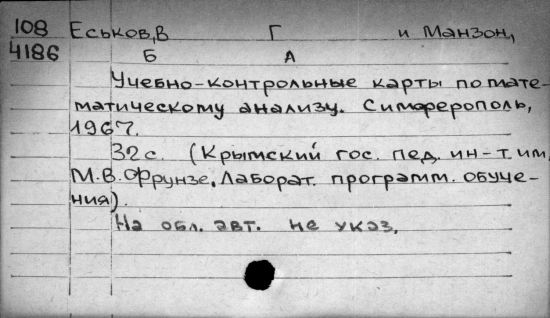 108 Еськов, В Г и Манзон,
4186 Б А
Учебно-контрольные карты по мате-
матическому анализу. Симферополь,
1967.
32 с. (Крымский гос. пед. ин-т. им.
М.В. Фрунзе. Лаборат. программ. обуче-
ния).
На обл. авт. не указ.